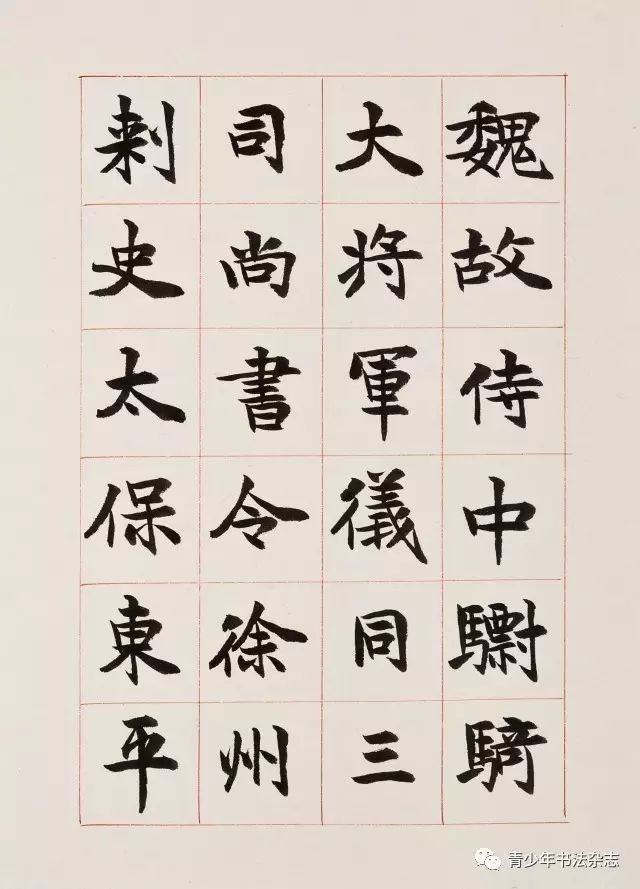 魏故侍中驃騎
大將軍儀同三
司尚書令徐州
刺史太保東平
青少年书法杂志